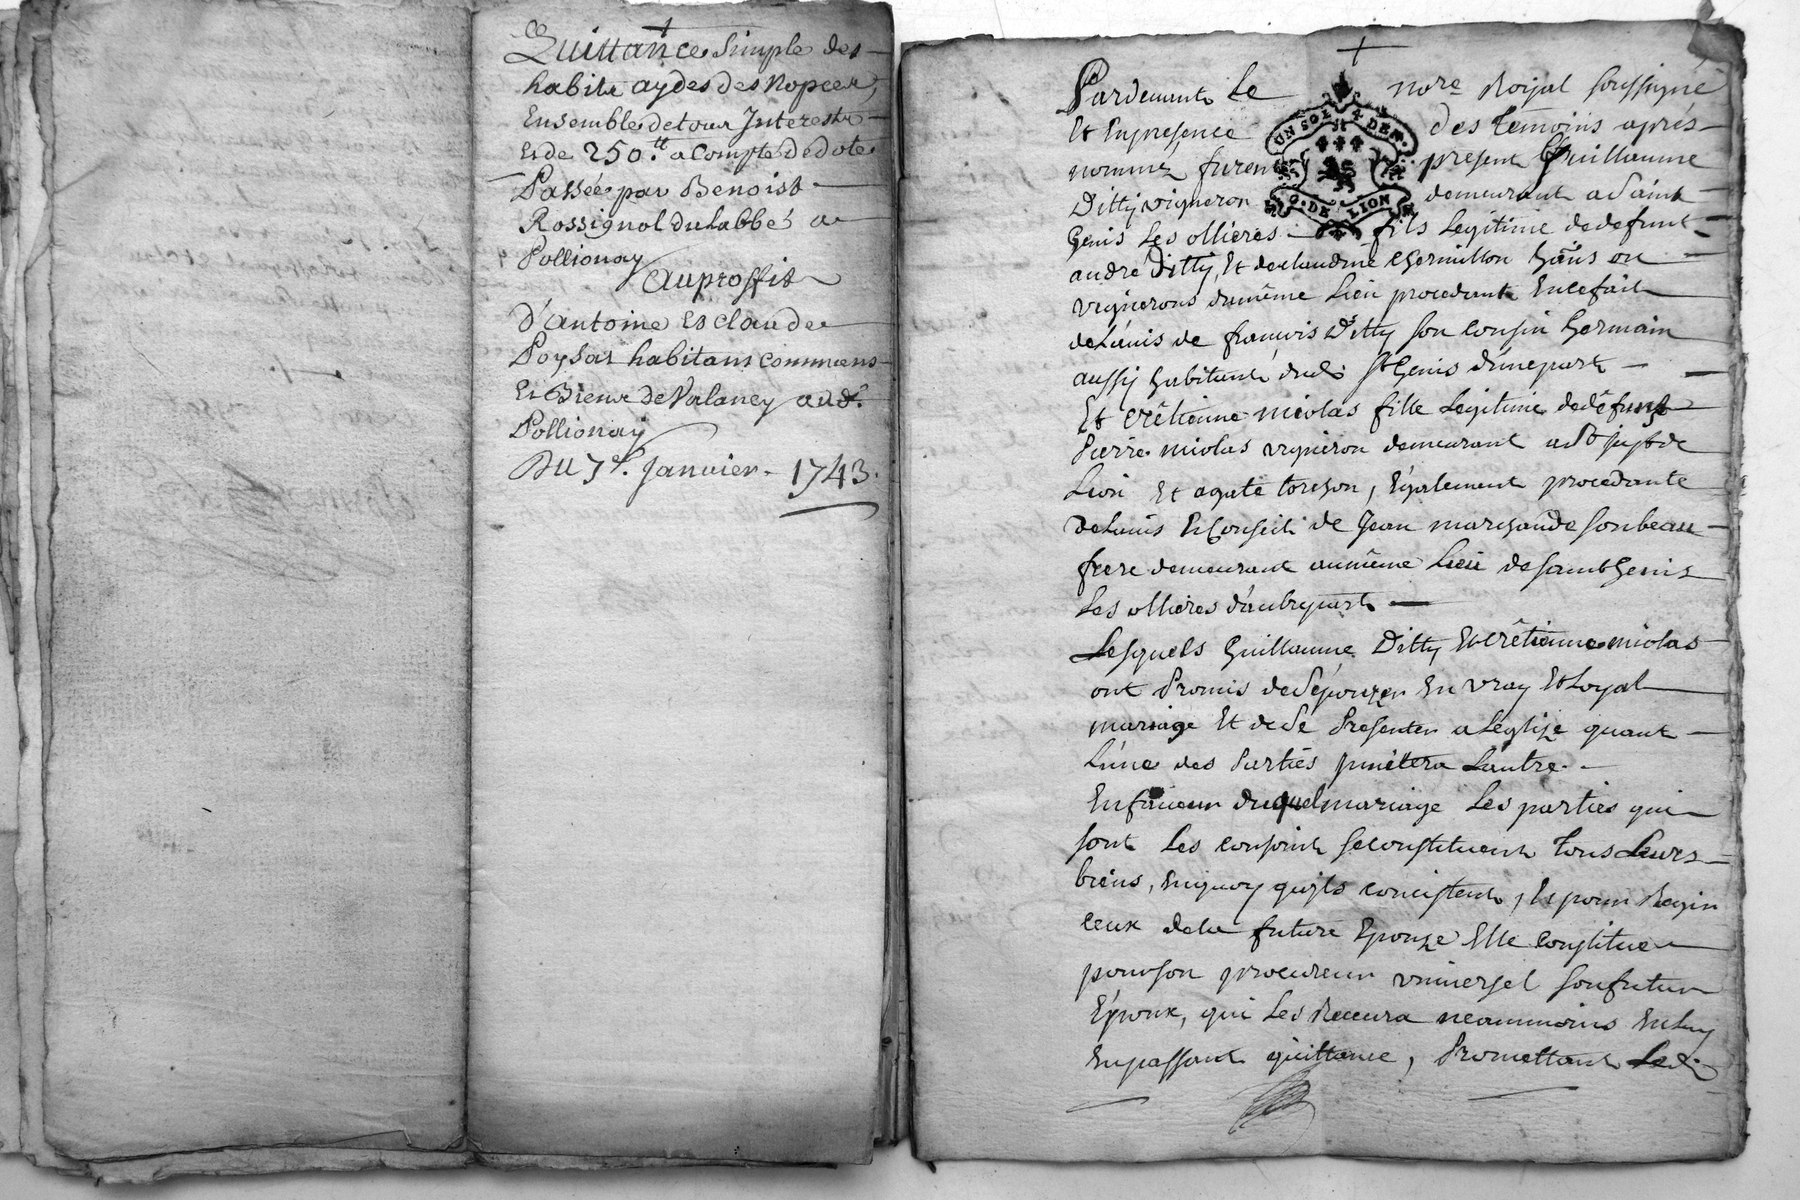 Quittance Simple des
habits aydes des Nopces,
Ensemble de tous Interests
Et de 250.tt a Compte de dote
Passée par Benoist
Rossignol du Labbé a
Pollionay
Au proffit
D'Antoine Et claude
Poysat habitans commens
Et Biens de Valancy aud.
Pollionay
Du 7e. Janvier. 1743.
Pardevant Le nore Roijal soussigné
Et En presence des temoins aprés
nommez furent present Guillaume
Ditty vigneron demeurant a Saint
Genis Les ollieres fils Legitime de defunt
andré Ditty, Et de claudine Chermillon Gâns ou
vignerons du même Lieu procedant En ce fait
de L'avis de francois Ditty son Cousin Germain
aussy habitant dud. St Genis d'une part
Et Crêtienne nicolas fille Legitime de defunt
Pierre nicolas vigneron demeurant a St just de
Lion Et agate torchon, Egalement procedante
de L'avis Et Conseil de Jean marchande son beau
frere demeurant au même Lieu de saint Genis
Les ollieres d'autre part
Lesquels Guillaume Ditty Et Crêtienne nicolas
ont Promis de S'épouzer En vray Et Loyal
mariage Et de Se Presenter a L'eglize quant
L'une des Parties Invitera L'autre.
En faveur duquel mariage Les parties qui
sont Les conjoint se constituent tous Leurs
biens, En quoy qu'ils concistent, Et pour Regir
ceux de la future Epouze Elle constitue
pour son procureur vniversel son futur
Epoux, qui Les Recevra neanmoins En Luy
En passant quittance, Promettant Led.
UN SOL 4 DEN.
G. DE LION